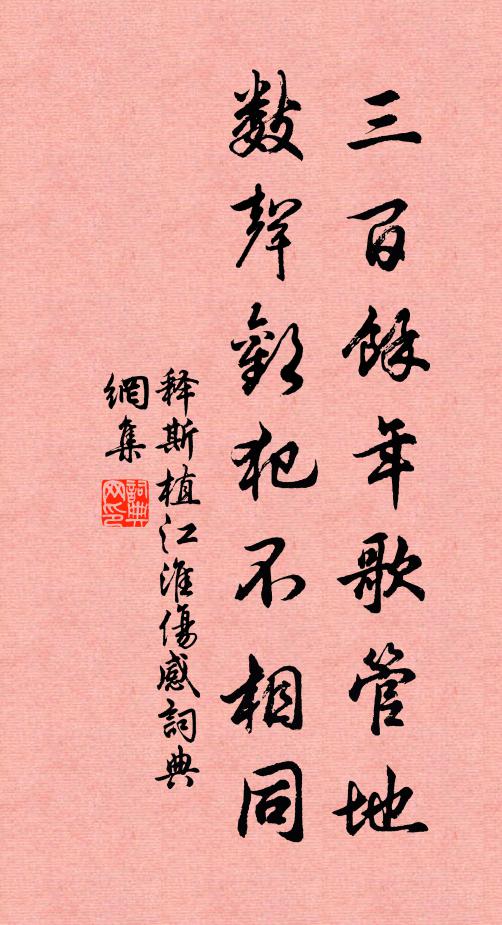 三百餘年歌管地
數聲犯不相同
释斯植江淮傷感詞典
網集
詞典網印